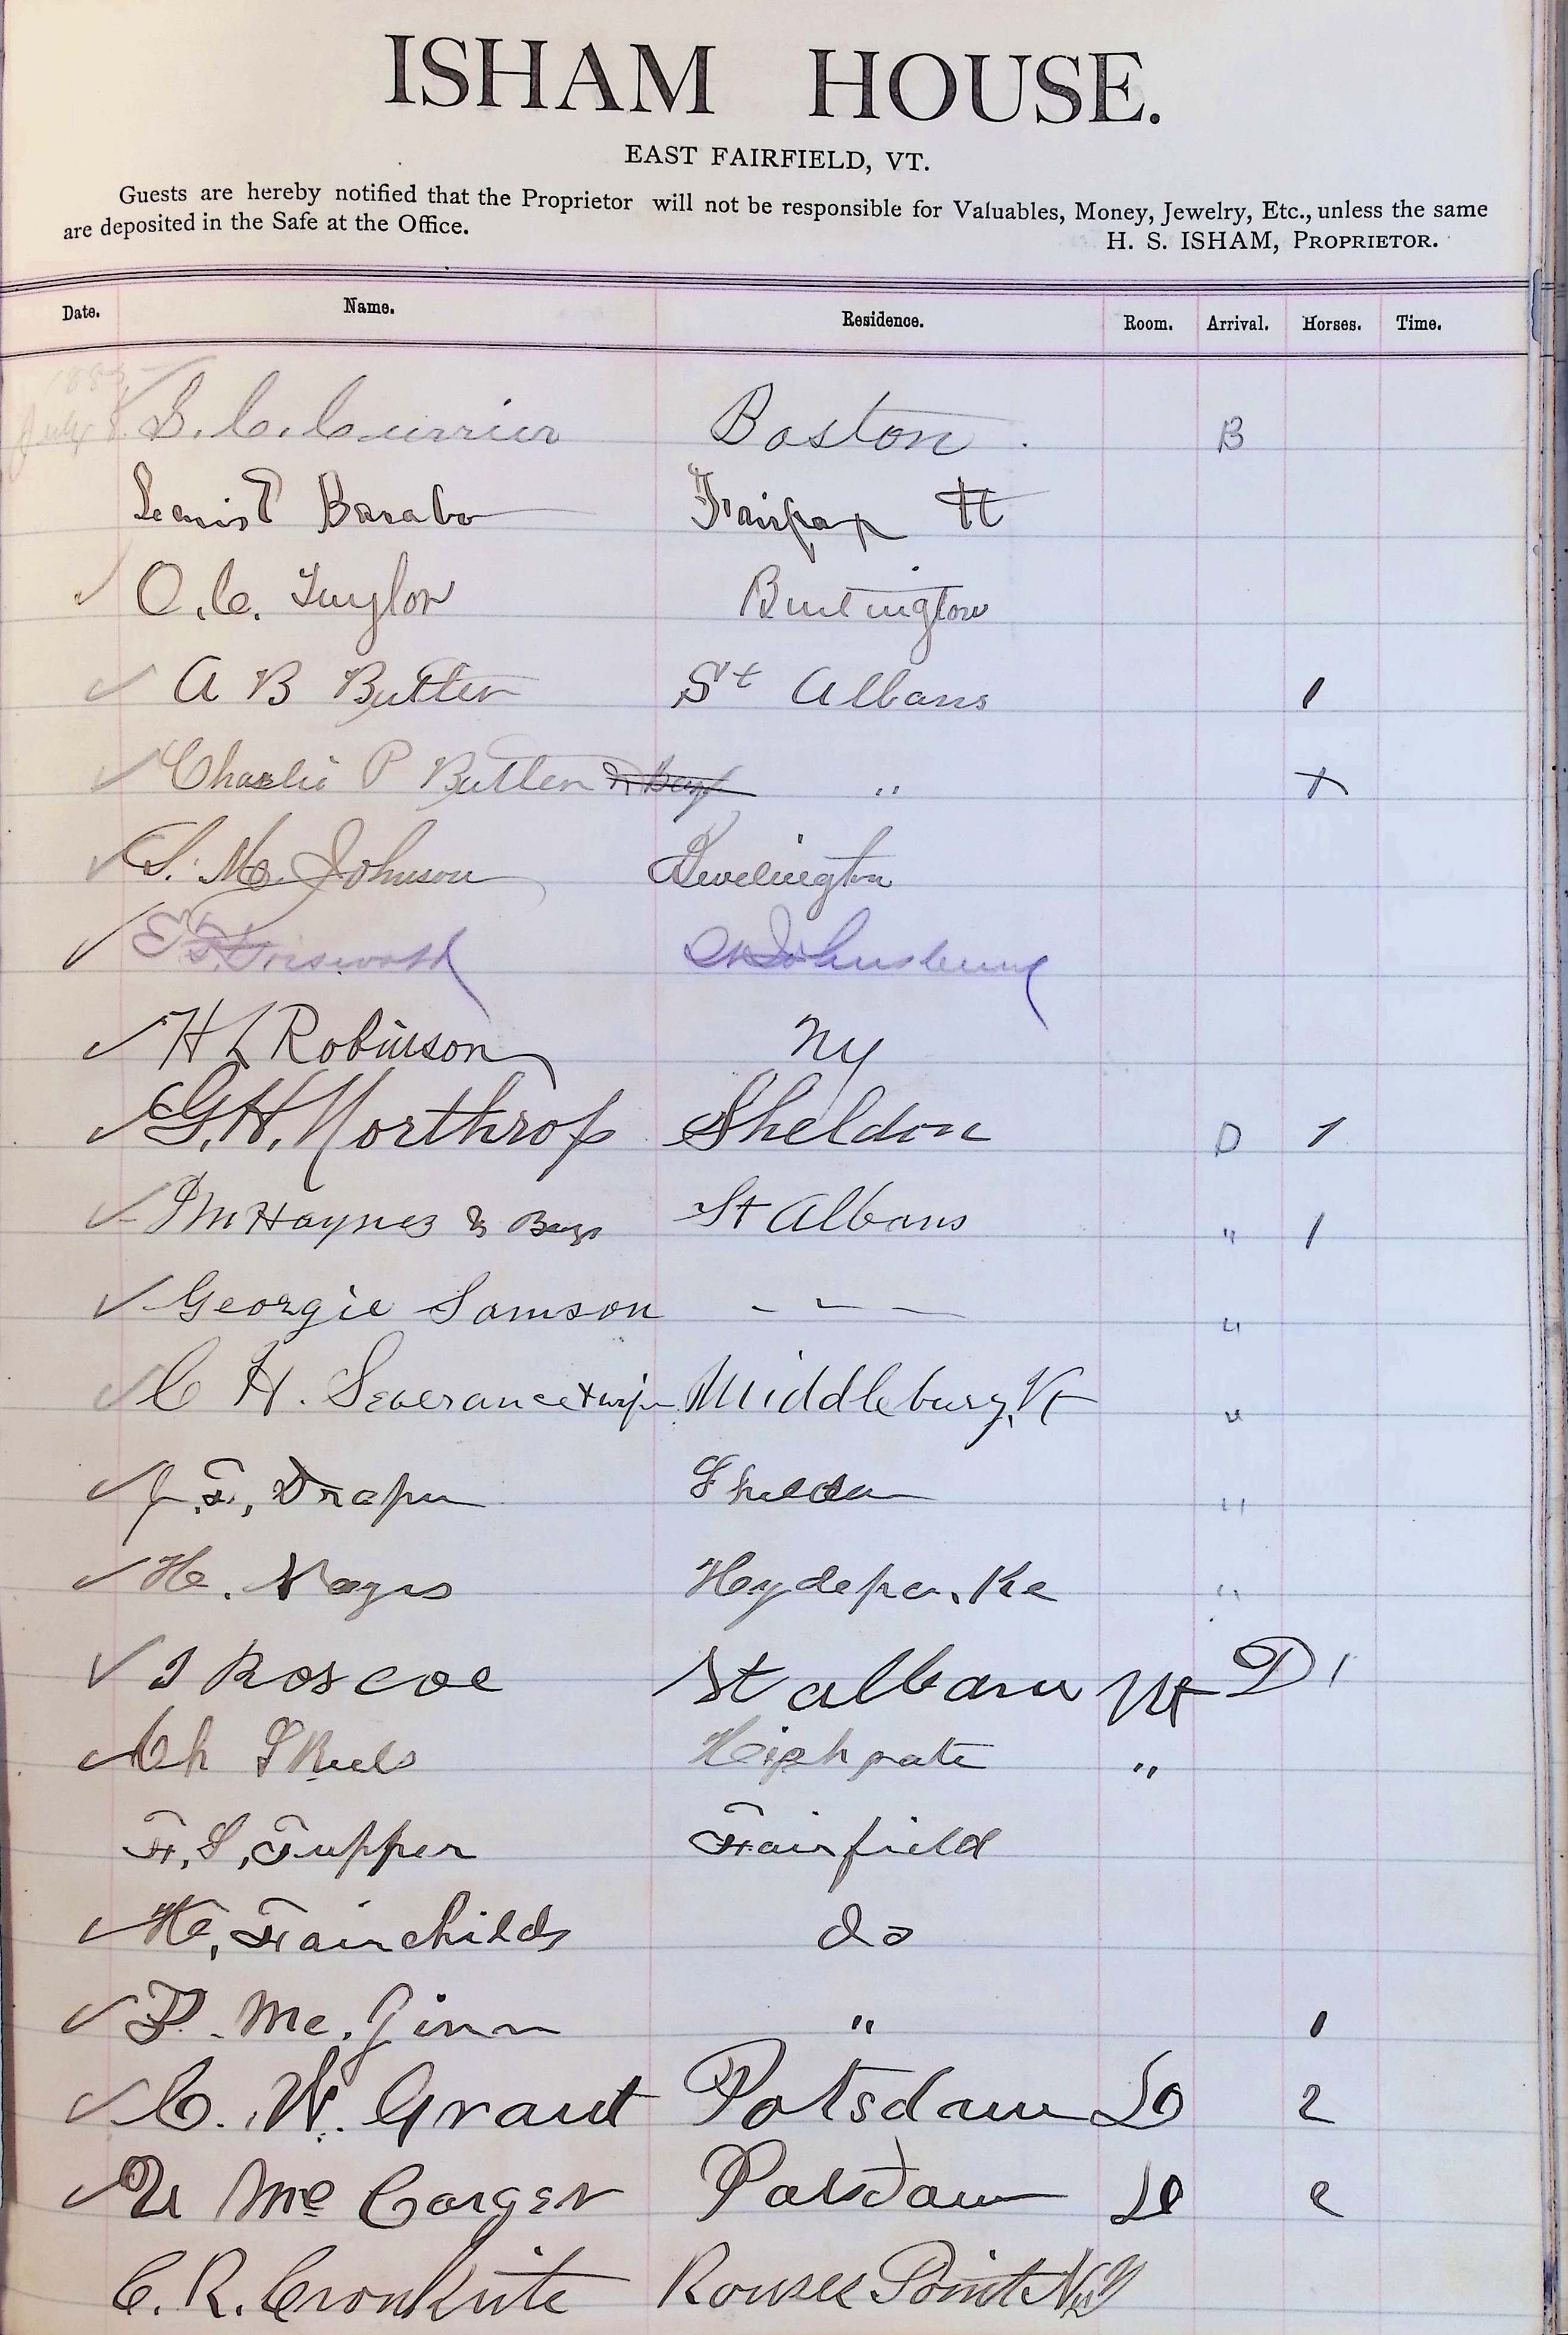 ISHAM HOUSE.
EAST FAIRFIELD, VT.
Guests are hereby notified that the Proprietor will not be responsible for Valuables, Money, Jewelry, Etc., unless the same
are deposited in the Safe at the Office.
H. S. ISHAM, PROPRIETOR.
Date. Name. Residence. Room. Arrival. Horses. Time.
July 8. S. C. Currier Boston. B
Lewis T Barabo Fairfax Vt
O. C. Taylor Burlington
A B Butler St Albans 1
Charlie P Butler "
S. M. Johnson Burlington
St Johnsbury
H L Robinson NY
G. H. Northrop Sheldon D 1
Haynes & Boys St Albans " 1
Georgie Samson - - - "
C H. Severance & wife Middlebury, Vt "
J. F. Draper Sheldon "
H. Noyes Hydepa. Rk "
I Roscoe St albans Vt D 1
Ch S Kiels Highgate "
F. S. Tupper Fairfield
H. Fairchilds do
P. Mc. Ginn " 1
C. W. Grant Potsdam Lo 2
U Mc Carger Potsdam 2
C. R. Cronkrite Rouses Point N.Y